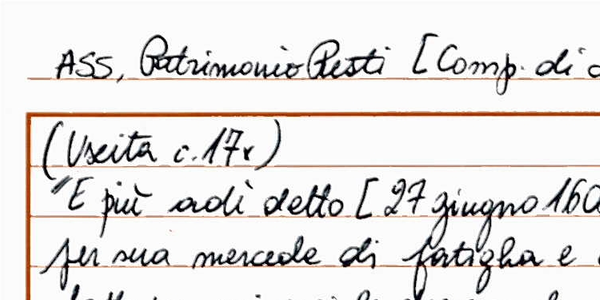 ASS, Patrimonio Resti [Comp. di
(Uscita c. 17r)
"E più adì detto [27 giugno 160
per sua mercede di fatigha e